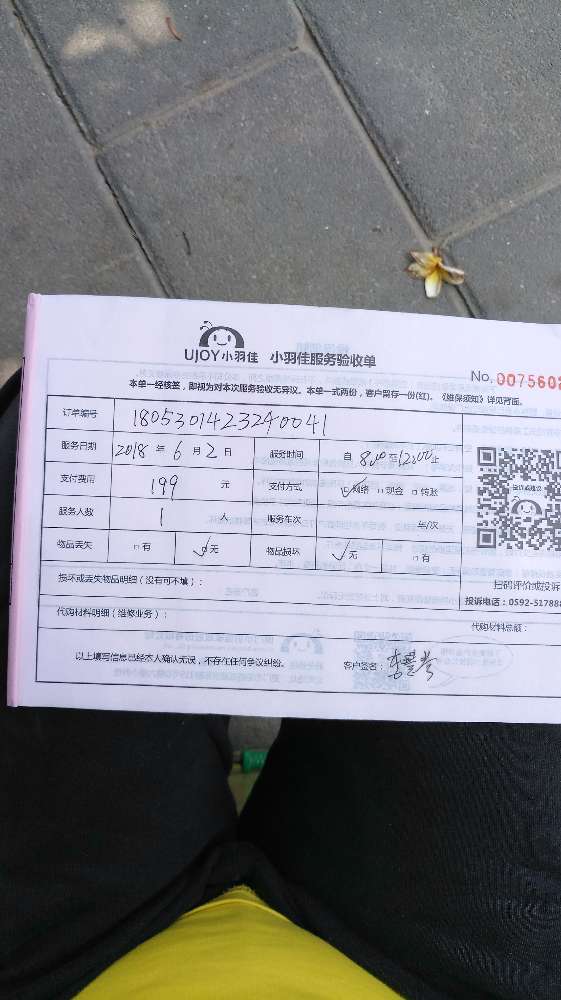 UJOY小羽佳 小羽佳服务验收单
No. 0075608
本单一经核签，即视为对本次服务验收无异议。本单一式两份，客户留存一份(红)。《维保须知》详见背面。
订单编号 1805301423240041
服务日期 2018 年 6 月 2 日 服务时间 自 8:00 至 12:00 止
支付费用 199 元 支付方式 ☑网络 □现金 □转账
服务人数 1 人 服务车次 车/次
物品丢失 □有 ☑无 物品损坏 ☑无 □有
扫码评价或投诉
损坏或丢失物品明细（没有可不填）：
投诉电话：0592-517888
代购材料明细（维修业务）： 代购材料总额：
以上填写信息已经本人确认无误，不存在任何争议纠纷。 客户签名：